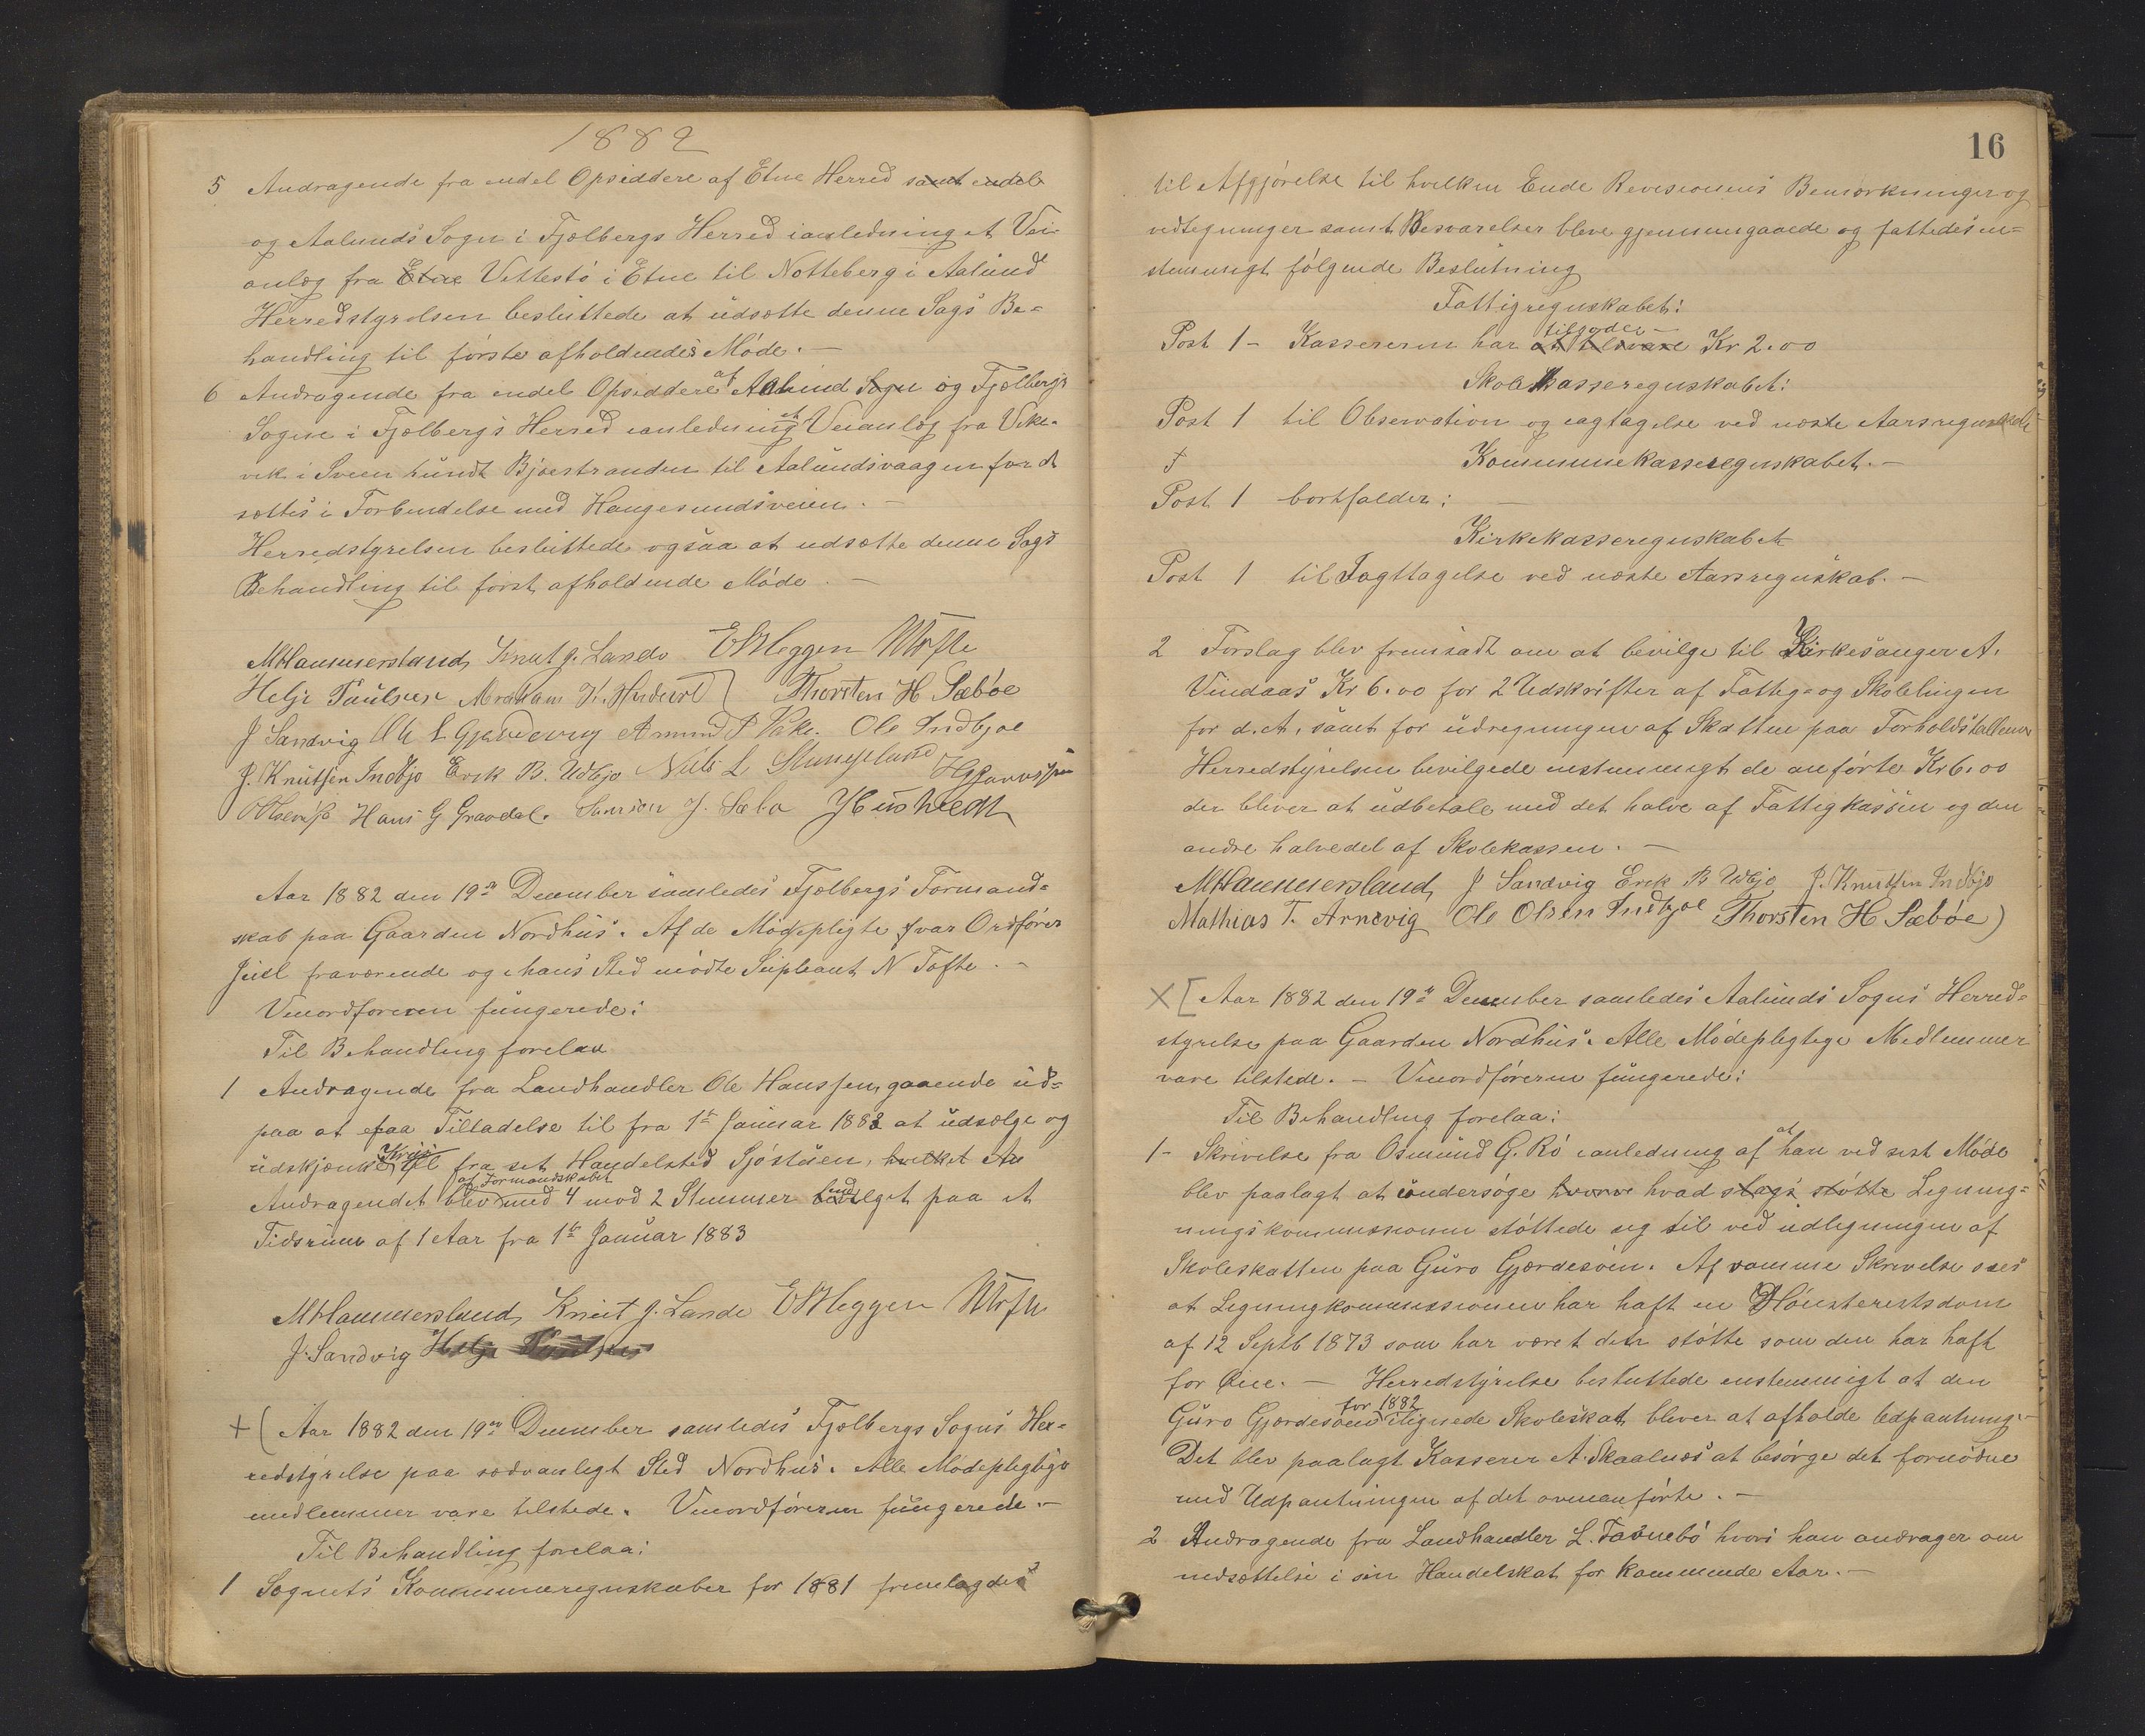 1882
5 Andragende fra endel Opsiddere af Etne Herred samt endel
og Aalunds Sogn i Fjælbergs Herred ianledning et Vei-
anlæg fra Etne Vettestø i Etne til Notteberg i Aalund
Herredstyrelsen besluttede at udsætte denne Sags Be-
handling til første afholdendes Møde. —
6 Andragende fra endel Opsiddere af Aalund Sogn og Fjælbergs
Sogne i Fjælbergs Herred ianledning et Veianlæg fra Vike-
vik i Sveen hundt Bjoestranden til Aalundsvaagen for at
sættes i Forbindelse med Haugesundsveien. —
Herredstyrelsen besluttede ogsaa at udsætte denne Sags
Behandling til først afholdende Møde. —
MHammersland Knut J. Lande EBHeggen NTofte
Helje Paulsen Abraham K. Thorsten H Sæbøe
J Sandvig Ole L Gjerdevig Amund P Vike. Ole Indbjoe
J. Knutsen Indbjo Erek B. Udbjo Nils L Stangeland
Hans G Graodal. Samson J. Sæbo
Aar 1882 den 19de December samledes Fjælbergs Formand-
skab paa Gaarden Nordhus. Af de Mødepligte var Ordfører
Juel fraværende og i hans Sted mødte Supleant N Tofte. —
Viceordføreren fungerede:
Til Behandling forelaa
1 Andragende fra Landhandler Ole Hanssen, gaaende ud-
paa at faa Tilladelse til fra 1ste Januar 1883 at udsælge og
udskjænke Øl fra set Handelsted Sjøstuen, hvilket An
Andragendet blev af Formandskabet med 4 mod 2 Stemmer paa et
Tidsrum af 1 Aar fra 1ste Januar 1883
MHammersland Knut J. Lande EBHeggen NTofte
J. Sandvig Helje Paulsen
+ ( Aar 1882 den 19de December samledes Fjælbergs Sogns Her-
redstyrelse paa sædvanligt Sted Nordhus. Alle Mødepligtige
medlemmer vare tilstede. Viceordføreren fungerede. —
Til Behandling forelaa:
1 Sognets Kommuneregnskaber for 1881 fremlagdes
16
til Afgjørelse til hvilken Ende Revisionens Bemærkninger og
vedtegninger samt Besvarelser bleve gjennemgaaede og fattedes en-
stemmigt følgende Beslutning
Fattigregnskabet:
Post 1 - Kassereren har at tilsvare tilgode — Kr 2.00
Skolekasseregnskabet:
Post 1 til Observation og iagtagelse ved næste Aarsregnskab
Kommunekasseregnskabet. —
Post 1 bortfalder: —
Kirkekasseregnskabet
Post 1 til Iagttagelse ved næste Aarsregnskab. —
2 Forslag blev fremsadt om at bevilge til Kirkesanger A.
Vindaas Kr 6.00 for 2 Udskrifter af Fattig- og Skolelingen
for d. A. samt for udregningen af Skatten paa Forholdstallene
Herredstyrelsen bevilgede enstemmigt de anførte Kr 6.00
der bliver at udbetale med det halve af Fattigkassen og den
andre halvedel af Skolekassen. —
MHammersland J Sandvig Erek B Udbjo J. Knutsen Indbjo
Mathias T. Arnevig Ole Olsen Indbjoe Thorsten H Sæbøe)
X [ Aar 1882 den 19de December samledes Aalunds Sogns Herred-
styrelse paa Gaarden Nordhus. Alle Mødepligtige Medlemmer
vare tilstede. — Viceordføreren fungerede:
Til Behandling forelaa:
1- Skrivelse fra Osmund G. Rø ianledning af at han ved sist Møde
blev paalagt at undersøge hvorve hvad slags støtte Legning-
ningskommissionen støttede seg til ved udlegningen af
Skoleskatten paa Guro Gjærdesøen. Af samme Skrivelse sees
at Legningkommissionen har haft en Høiesteretsdom
af 12 Septb 1873 som har været den støtte som den har haft
for Øie. — Herredstyrelse besluttede enstemmigt at den
Guro Gjærdesøen for 1882 ilignede Skoleskat bliver at afholde Udpantning. —
Det blev paalagt Kasserer A. Skaalnæs at besørge det fornødne
med Udpantningen af det ovenanførte. —
2 Andragende fra Landhandler L. Faavnebø hvori han andrager om
nedsættelse i sin Handelskat for kommende Aar. —